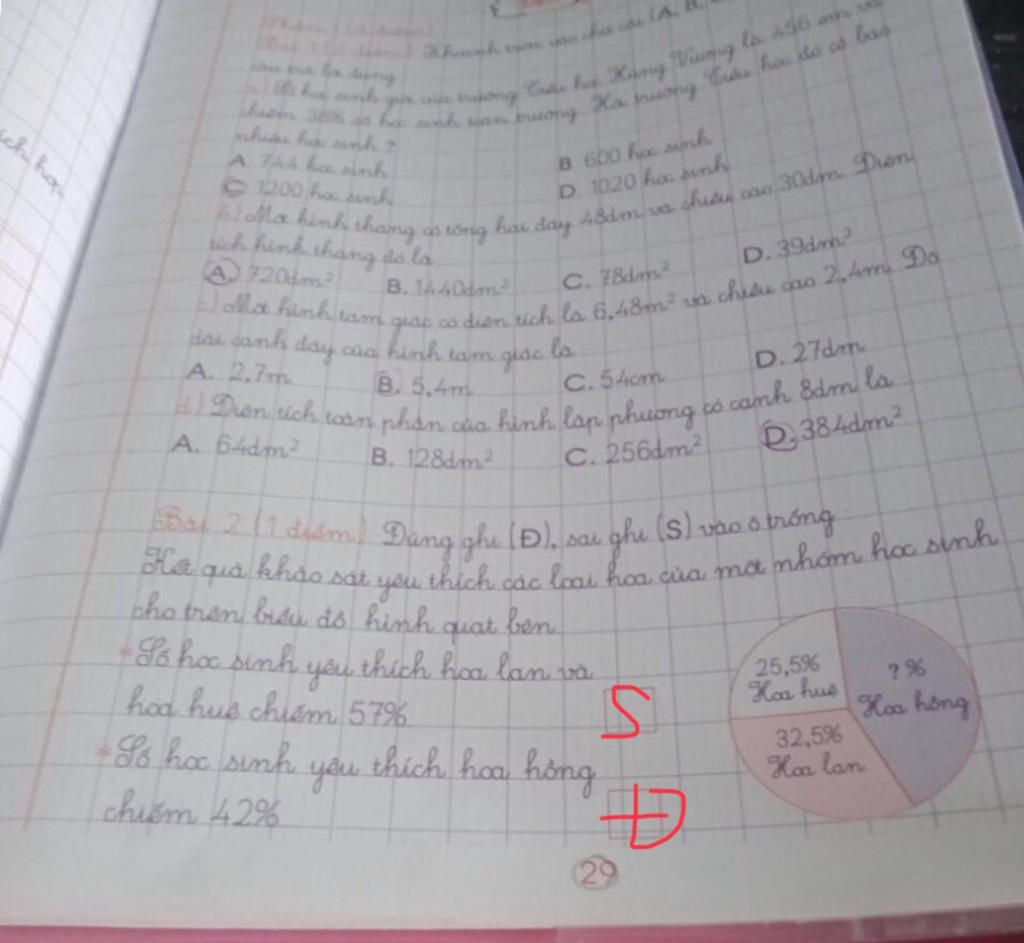 ích hơn
Phần 1 (4 điểm)
Bài 1 (2 điểm) Khoanh tròn vào chữ cái (A, B,
câu trả lời đúng
a) Số học sinh giỏi của trường Tiểu học Hùng Vương là 456 em và
chiếm 38% số học sinh toàn trường. Hỏi trường Tiểu học đó có bao
nhiêu học sinh ?
A. 744 học sinh
B. 600 học sinh
C. 1200 học sinh
D. 1020 học sinh
b) Một hình thang có tổng hai đáy 48dm và chiều cao 30dm. Diện
tích hình thang đó là
A. 720dm²
B. 1440dm²
C. 78dm²
D. 39dm²
c) Một hình tam giác có diện tích là 6,48m² và chiều cao 2,4m. Độ
dài cạnh đáy của hình tam giác là
A. 2,7m
B. 5,4m
C. 54cm
D. 27dm
d) Diện tích toàn phần của hình lập phương có cạnh 8dm là
A. 64dm²
B. 128dm²
C. 256dm²
D. 384dm²
Bài 2 (1 điểm) Đúng ghi (Đ), sai ghi (S) vào ô trống
Kết quả khảo sát yêu thích các loại hoa của một nhóm học sinh
cho trên biểu đồ hình quạt bên
* Số học sinh yêu thích hoa lan và
hoa huệ chiếm 57%
S
* Số học sinh yêu thích hoa hồng
chiếm 42%
Đ
25,5%
Hoa huệ
? %
Hoa hồng
32,5%
Hoa lan
29